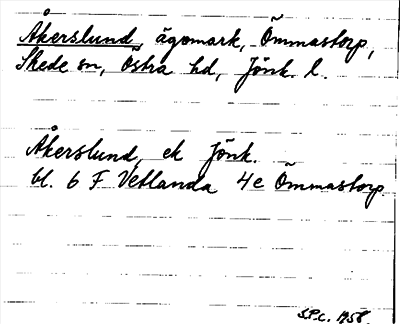 Åkerslund, ägomark, Ömmastorp,
Skede sn, Östra hd, Jönk. l.
Åkerslund, ek Jönk.
bl. 6 F Vetlanda 4e Ömmastorp
S.P.c. 1958.